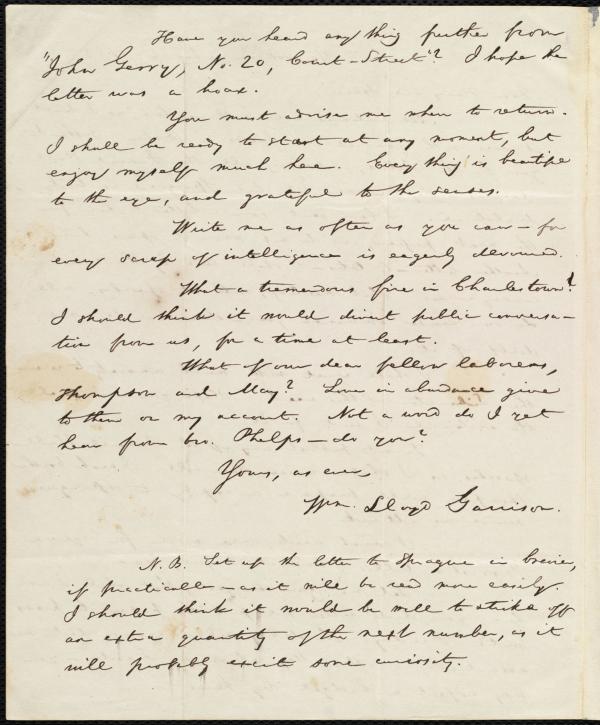 Have you heard any thing further from
"John Gerry, No. 20, Court-Street"? I hope the
letter was a hoax.
You must advise me when to return.
I shall be ready to start at any moment, but
enjoy myself much here. Every thing is beautiful
to the eye, and grateful to the senses.
Write me as often as you can—for
every scrap of intelligence is eagerly devoured.
What a tremendous fire in Charlestown!
I should think it would divert public conversa-
tion from us, for a time at least.
What of our dear fellow laborers,
Thompson and May? Love in abundance give
to them on my account. Not a word do I yet
hear from bro. Phelps—do you?
Yours, as ever,
Wm. Lloyd Garrison.
N. B. Set up the letter to Sprague in brevier,
if practicable—as it will be read more easily.
I should think it would be well to strike off
an extra quantity of the next number, as it
will probably excite some curiosity.